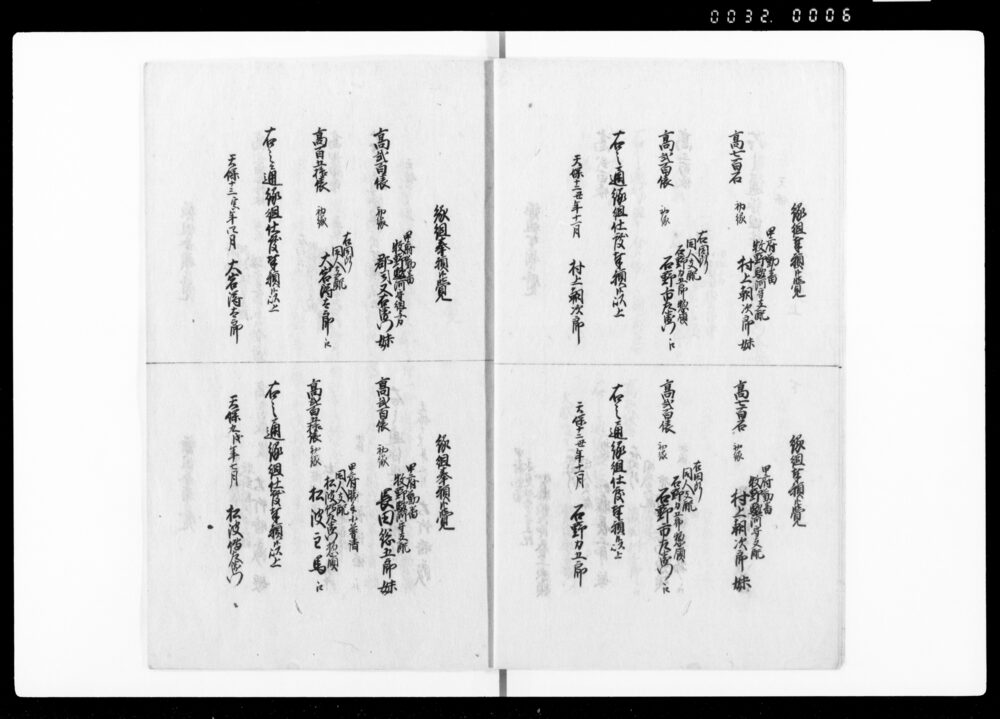 0032. 0006
縁組奉願候覚
甲府勤番
牧野駿河守支配
高七百石 初縁 村上朝次郎 妹
右同断
同人支配
石野力三郎惣領
高弐百俵 初縁 石野市左衛門 江
右之通縁組仕度奉願候以上
天保十二丑年十一月 村上朝次郎
縁組奉願候覚
甲府勤番
牧野駿河守支配
高七百石 初縁 村上朝次郎 妹
右同断
同人支配
石野力三郎惣領
高弐百俵 初縁 石野市左衛門 江
右之通縁組仕度奉願候以上
天保十二丑年十一月 石野力三郎
縁組奉願候覚
甲府勤番
牧野駿河守組与力
高弐百俵 初縁 郡司又右衛門 妹
右同断
同人支配
高百五拾俵 初縁 大岩 江
右之通縁組仕度奉願候以上
天保十三寅年 月 大岩
縁組奉願候覚
甲府勤番
牧野駿河守支配
高弐百俵 初縁 長田総五郎 妹
甲府勝手小普請
同人支配
松波 惣領
高弐百五拾俵 初縁 松波主馬 江
右之通縁組仕度奉願候以上
天保九戌年七月 松波